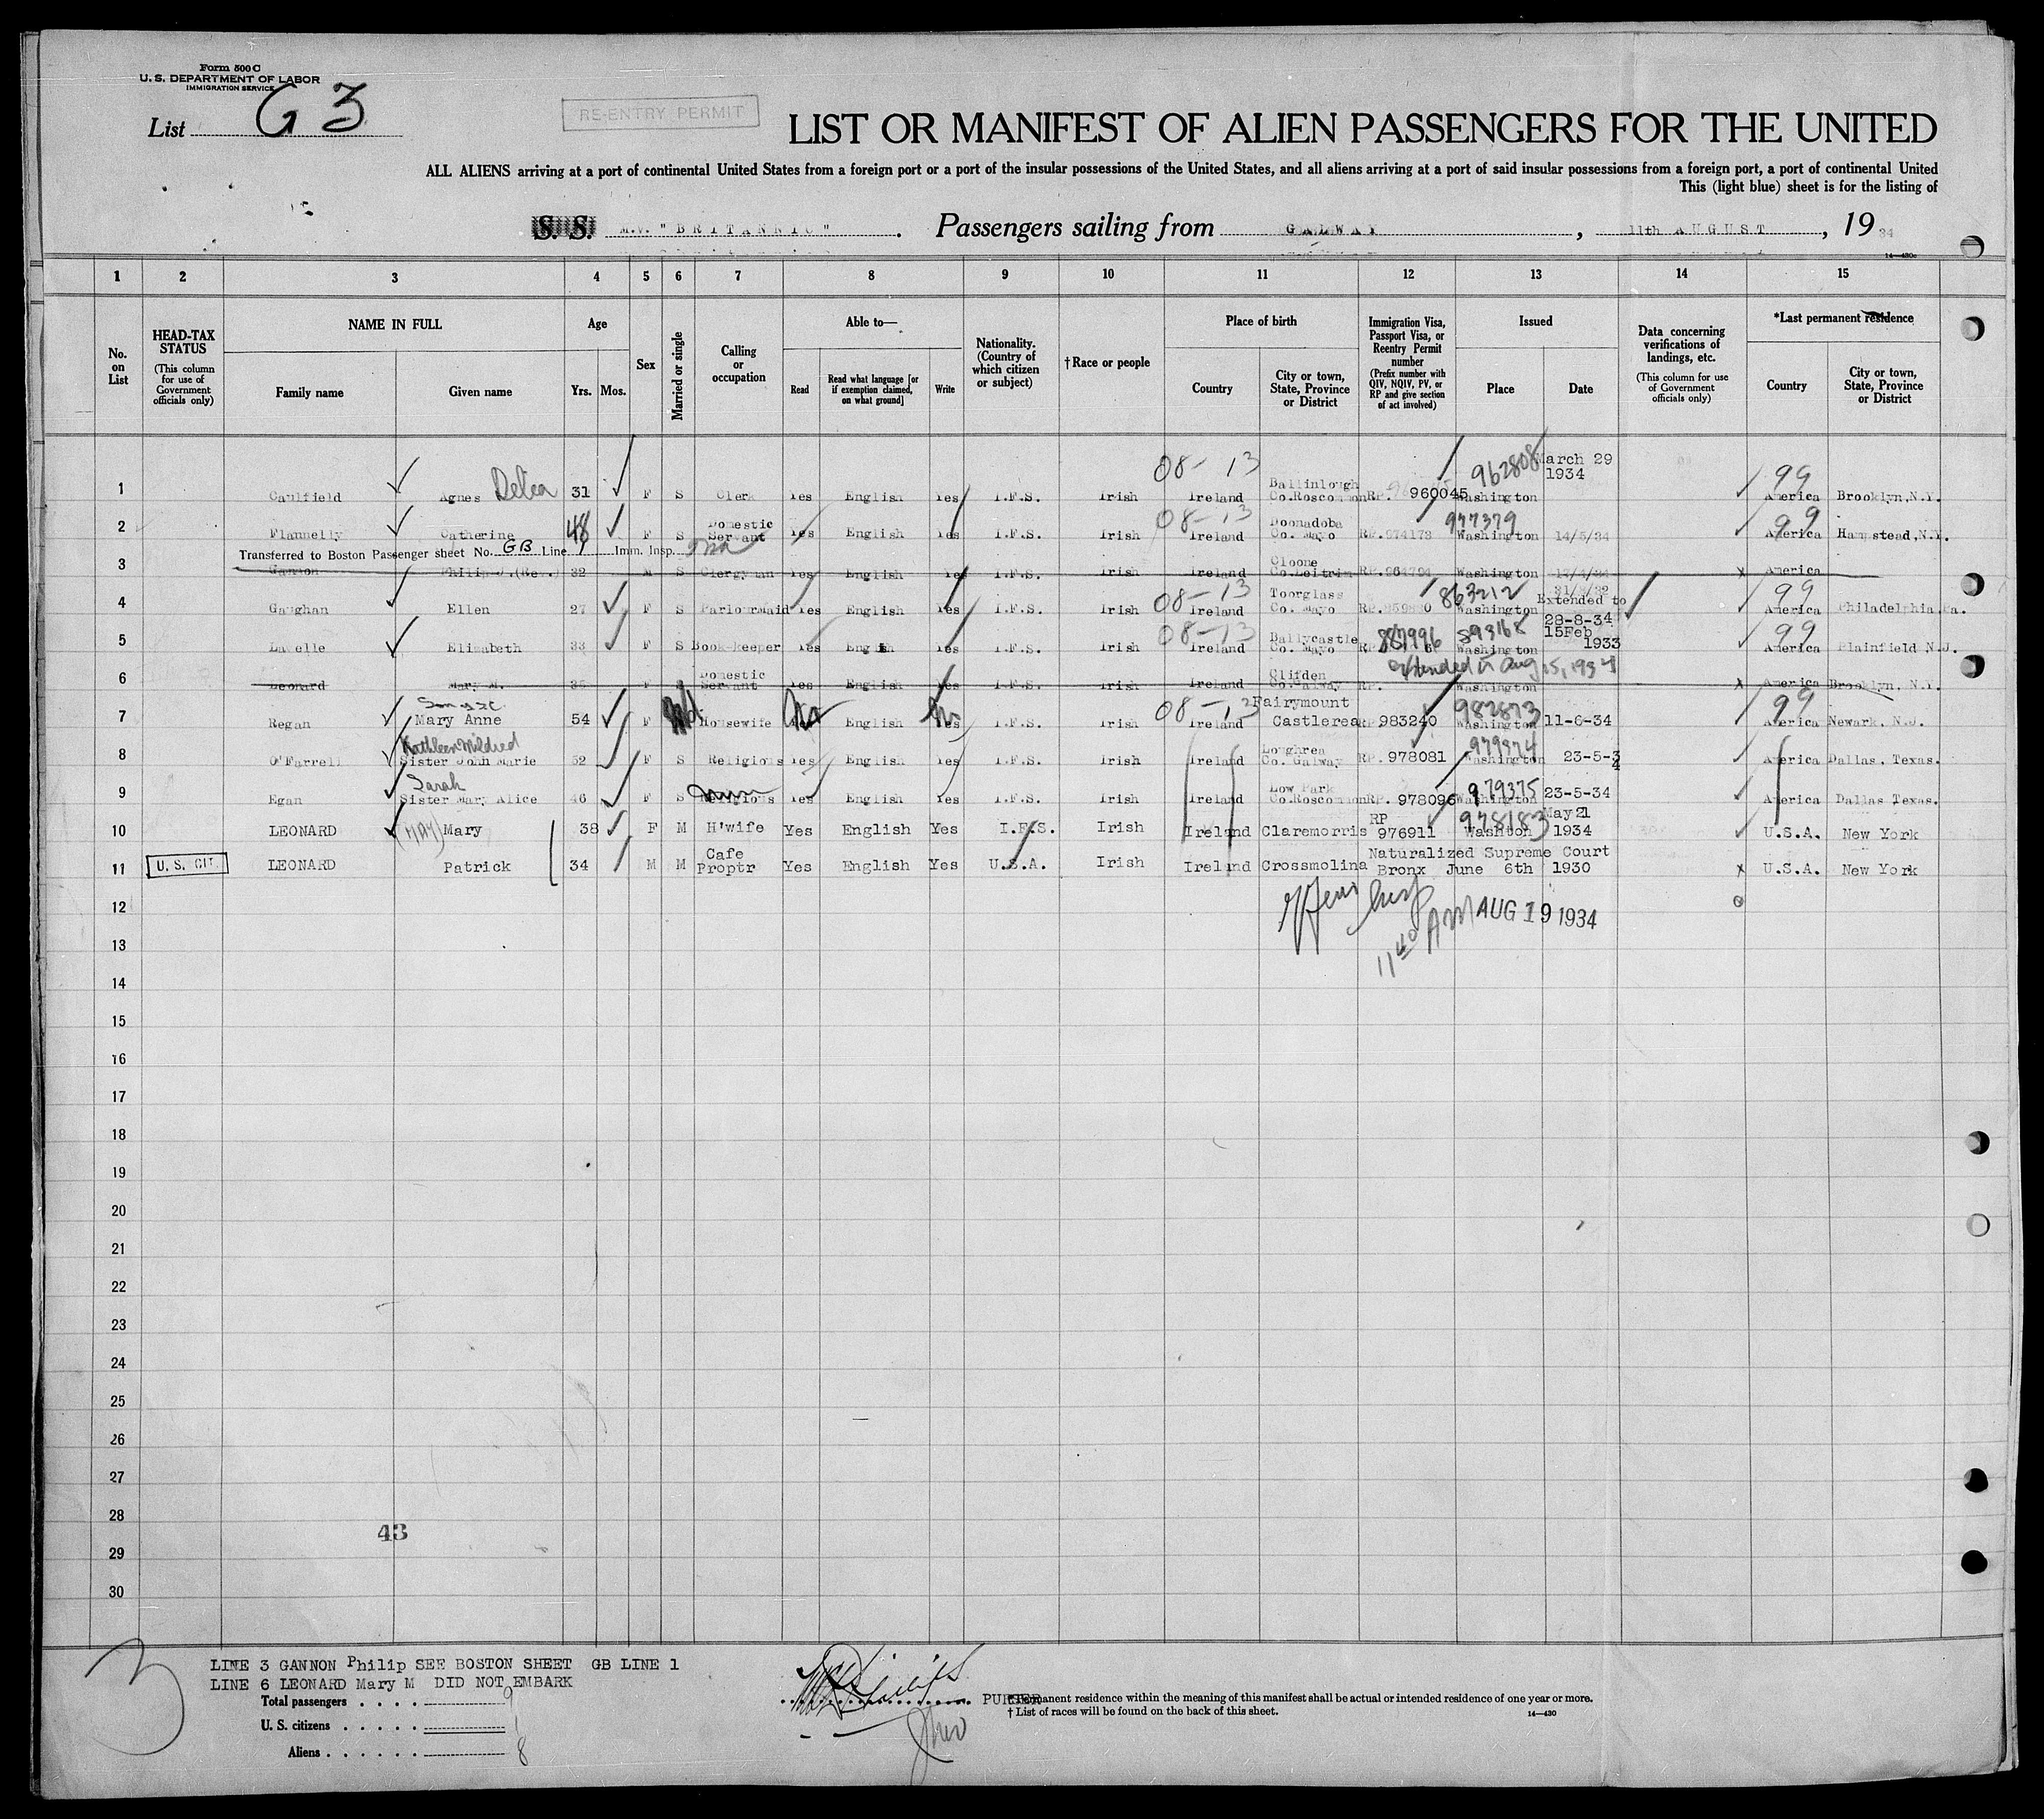 Form 500 C
U. S. DEPARTMENT OF LABOR
IMMIGRATION SERVICE
List G 3
RE-ENTRY PERMIT
LIST OR MANIFEST OF ALIEN PASSENGERS FOR THE UNITED
ALL ALIENS arriving at a port of continental United States from a foreign port or a port of the insular possessions of the United States, and all aliens arriving at a port of said insular possessions from a foreign port, a port of continental United
This (light blue) sheet is for the listing of
S. S. M.V. "BRITANNIC". Passengers sailing from GALWAY, 11th AUGUST, 19 34
14—430c
1 2 3 4 5 6 7 8 9 10 11 12 13 14 15
No. on List
HEAD-TAX STATUS (This column for use of Government officials only)
NAME IN FULL
Family name Given name
Age
Yrs. Mos.
Sex
Married or single
Calling or occupation
Able to—
Read Read what language [or if exemption claimed, on what ground] Write
Nationality. (Country of which citizen or subject)
†Race or people
Place of birth
Country City or town, State, Province or District
Immigration Visa, Passport Visa, or Reentry Permit number (Prefix number with QIV, NQIV, PV, or RP and give section of act involved)
Issued
Place Date
Data concerning verifications of landings, etc. (This column for use of Government officials only)
*Last permanent residence
Country City or town, State, Province or District
08-13 962808 March 29 1934 99
1 Caulfield Agnes Delia 31 F S Clerk Yes English Yes I.F.S. Irish Ireland Ballinlough Co.Roscommon RP. 960045 Washington America Brooklyn, N.Y.
08-13 977379 99
2 Flannelly Catherine 48 F S Domestic Servant Yes English Yes I.F.S. Irish Ireland Doonadoba Co. Mayo RP.974173 Washington 14/5/34 America Hampstead, N.Y.
Transferred to Boston Passenger sheet No. GB Line 1 Imm. Insp.
3 Gannon Philip J.(Rev.) 32 M S Clergyman Yes English Yes I.F.S. Irish Ireland Cloone Co.Leitrim RP.964794 Washington 17/4/34 x America
08-13 863212 99
4 Gaughan Ellen 27 F S Parlourmaid Yes English Yes I.F.S. Irish Ireland Toorglass Co. Mayo RP. Washington Extended to 28-8-34 America Philadelphia, Pa.
08-13 887996 893168 99
5 Lavelle Elizabeth 33 F S Book-keeper Yes English Yes I.F.S. Irish Ireland Ballycastle Co. Mayo RP. Washington 15Feb 1933 America Plainfield N.J.
extended to Aug 15, 1934
6 Leonard Mary M. 35 F S Domestic Servant Yes English Yes I.F.S. Irish Ireland Clifden Co.Galway RP. Washington x America Brooklyn, N.Y.
08-13 982873 99
7 Regan Mary Anne 54 F Md. Housewife No English No I.F.S. Irish Ireland Fairymount Castlerea RP 983240 Washington 11-6-34 America Newark, N.J.
Kathleen Mildred 979374
8 O'Farrell Sister John Marie 52 F S Religious Yes English Yes I.F.S. Irish Ireland Loughrea Co. Galway RP. 978081 Washington 23-5-34 America Dallas, Texas.
Sarah 979375
9 Egan Sister Mary Alice 46 F S Religious Yes English Yes I.F.S. Irish Ireland Low Park Co.Roscommon RP. 978096 Washington 23-5-34 America Dallas Texas.
10 LEONARD (MAY) Mary 38 F M H'wife Yes English Yes I.F.S. Irish Ireland Claremorris RP 976911 978183 Washton May 21 1934 U.S.A. New York
11 U. S. CIT. LEONARD Patrick 34 M M Cafe Proptr Yes English Yes U.S.A. Irish Ireland Crossmolina Naturalized Supreme Court Bronx June 6th 1930 x U.S.A. New York
12
11 40 AM AUG 19 1934
13
14
15
16
17
18
19
20
21
22
23
24
25
26
27
28
43
29
30
3
LINE 3 GANNON Philip SEE BOSTON SHEET GB LINE 1
LINE 6 LEONARD Mary M DID NOT EMBARK
Total passengers 9
U. S. citizens 1
Aliens 8
PURSER
*Permanent residence within the meaning of this manifest shall be actual or intended residence of one year or more.
† List of races will be found on the back of this sheet.
14—430